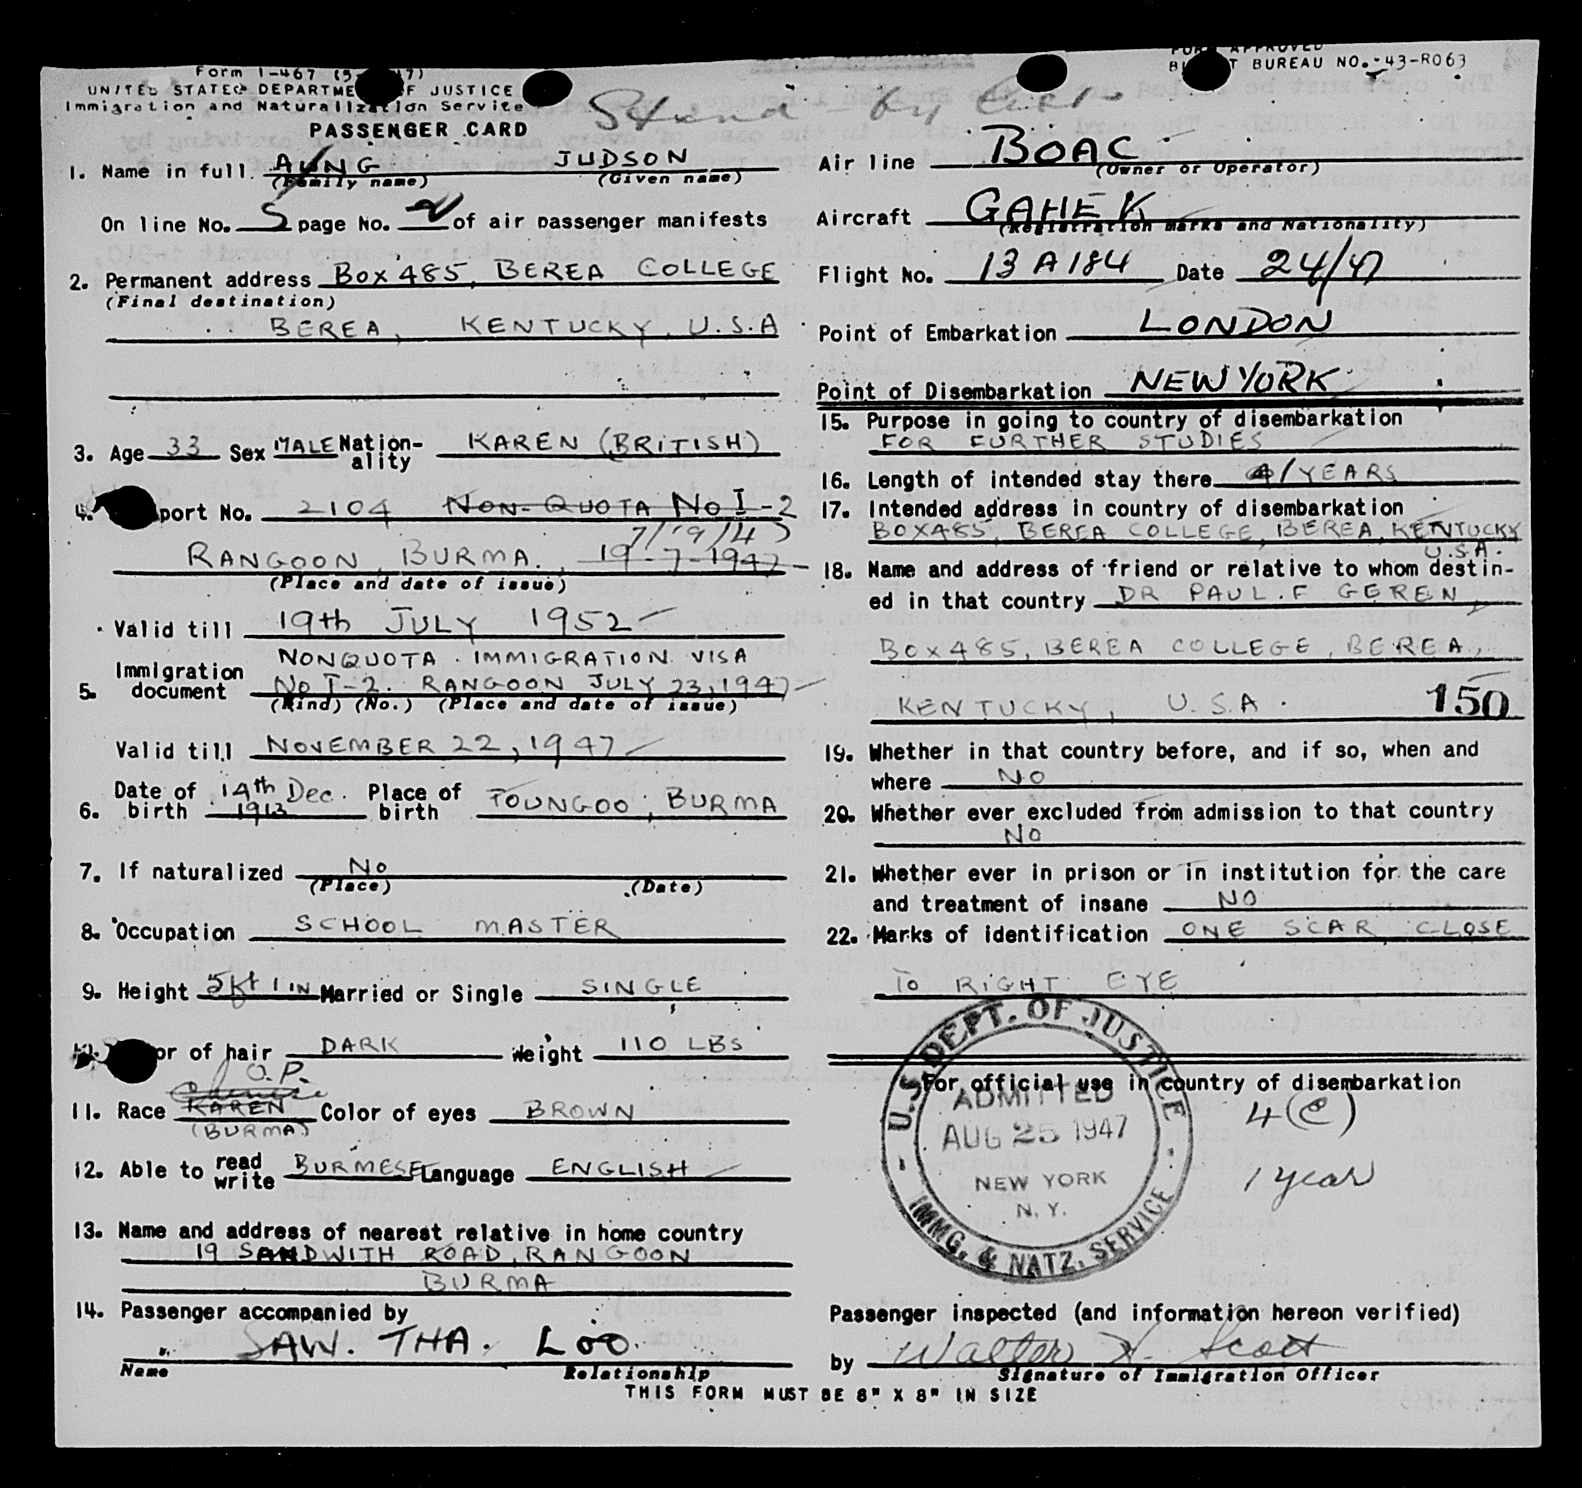 Form I-467 (5 47)
UNITED STATES DEPARTME F JUSTICE
Immigration and Naturalization Service
PASSENGER CARD
FORM APPROVED
B T BUREAU NO. 43-R063
Stand by
1. Name in full AUNG JUDSON
(Family name) (Given name)
On line No. 5 page No. 2 of air passenger manifests
2. Permanent address BOX 485, BEREA COLLEGE
(Final destination)
BEREA, KENTUCKY, U.S.A
3. Age 33 Sex MALE Nation-ality KAREN (BRITISH)
4. port No. 2104 NON-QUOTA No I-2
7/19/47
RANGOON, BURMA., 19-7-1947
(Place and date of issue)
Valid till 19th JULY 1952
5. Immigration document NONQUOTA IMMIGRATION VISA
No I-2. RANGOON JULY 23, 1947
(Kind) (No.) (Place and date of issue)
Valid till NOVEMBER 22, 1947
6. Date of birth 14th Dec. 1913 Place of birth TOUNGOO, BURMA
7. If naturalized No
(Place) (Date)
8. Occupation SCHOOL MASTER
9. Height 5ft 1 IN Married or Single SINGLE
10. or of hair DARK Weight 110 LBS
O.P.
11. Race KAREN Color of eyes BROWN
(BURMA)
12. Able to read write BURMESE Language ENGLISH
13. Name and address of nearest relative in home country
19 SANDWITH ROAD, RANGOON
BURMA
14. Passenger accompanied by
SAW. THA. LOO.
Name Relationship
Air line BOAC
(Owner or Operator)
Aircraft GAHEK
(Registration marks and Nationality)
Flight No. 13 A 184 Date 24/47
Point of Embarkation LONDON
Point of Disembarkation NEW YORK
15. Purpose in going to country of disembarkation
FOR FURTHER STUDIES
16. Length of intended stay there 4/YEARS
17. Intended address in country of disembarkation
BOX 485, BEREA COLLEGE, BEREA, KENTUCKY
U.S.A.
18. Name and address of friend or relative to whom destin-
ed in that country DR PAUL. F GEREN,
BOX 485, BEREA COLLEGE, BEREA,
KENTUCKY, U.S.A. 150
19. Whether in that country before, and if so, when and
where NO
20. Whether ever excluded from admission to that country
NO
21. Whether ever in prison or in institution for the care
and treatment of insane NO
22. Marks of identification ONE SCAR CLOSE
TO RIGHT EYE
For official use in country of disembarkation
U.S. DEPT. OF JUSTICE
ADMITTED
AUG 25 1947
NEW YORK
N.Y.
IMMG. & NATZ. SERVICE
4(e)
1 year
Passenger inspected (and information hereon verified)
by Walter H. Scott
Signature of Immigration Officer
THIS FORM MUST BE 8" X 8" IN SIZE